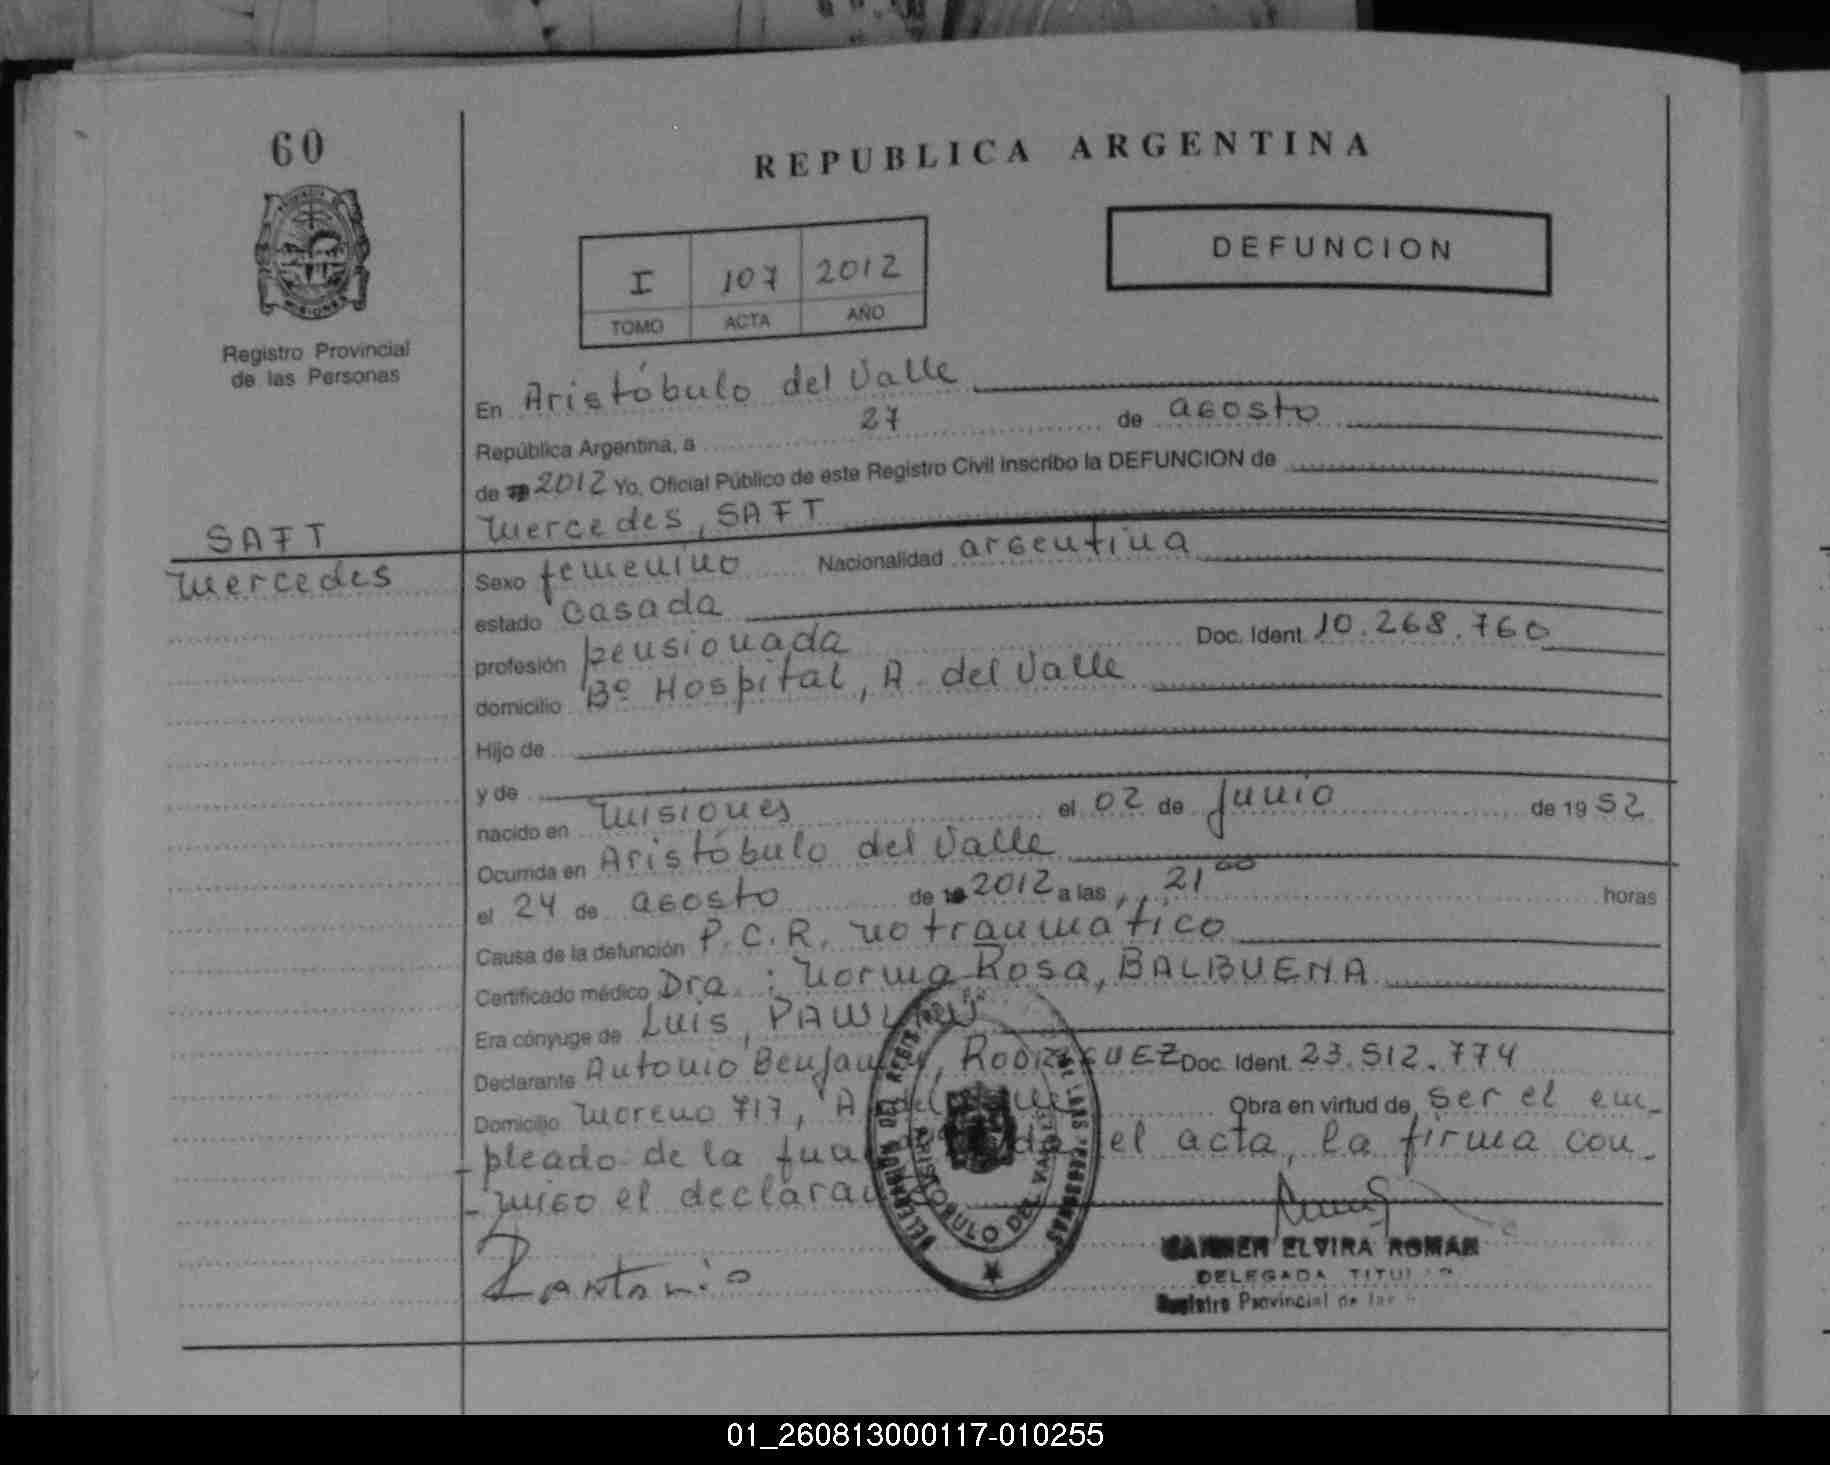 60
REPUBLICA ARGENTINA
DEFUNCION
I 107 2012
TOMO ACTA AÑO
Registro Provincial
de las Personas
En Aristóbulo del Valle
República Argentina, a 27 de agosto
de 2012 Yo, Oficial Público de este Registro Civil inscribo la DEFUNCION de
SAFT
Mercedes, SAFT
Mercedes
Sexo femenino Nacionalidad argentina
estado casada
profesión pensionada Doc. Ident. 10.268.760
domicilio Bº Hospital, A. del Valle
Hijo de
y de
nacido en Misiones el 02 de junio de 1952
Ocurrida en Aristóbulo del Valle
el 24 de agosto de 2012 a las 21 00 horas
Causa de la defunción P.C.R. no traumático
Certificado médico Dra.: Norma Rosa, BALBUENA
Era cónyuge de Luis,
Declarante Antonio Benjamin, RODRIGUEZ Doc. Ident. 23.512.774
Domicilio Moreno 717, A. del Valle Obra en virtud de ser el em-
-pleado de la el acta, la firma con-
-migo el
ARISTOBULO DEL VALLE
CARMEN ELVIRA ROMAN
DELEGADA TITULAR
Registro Provincial de las
01_260813000117-010255